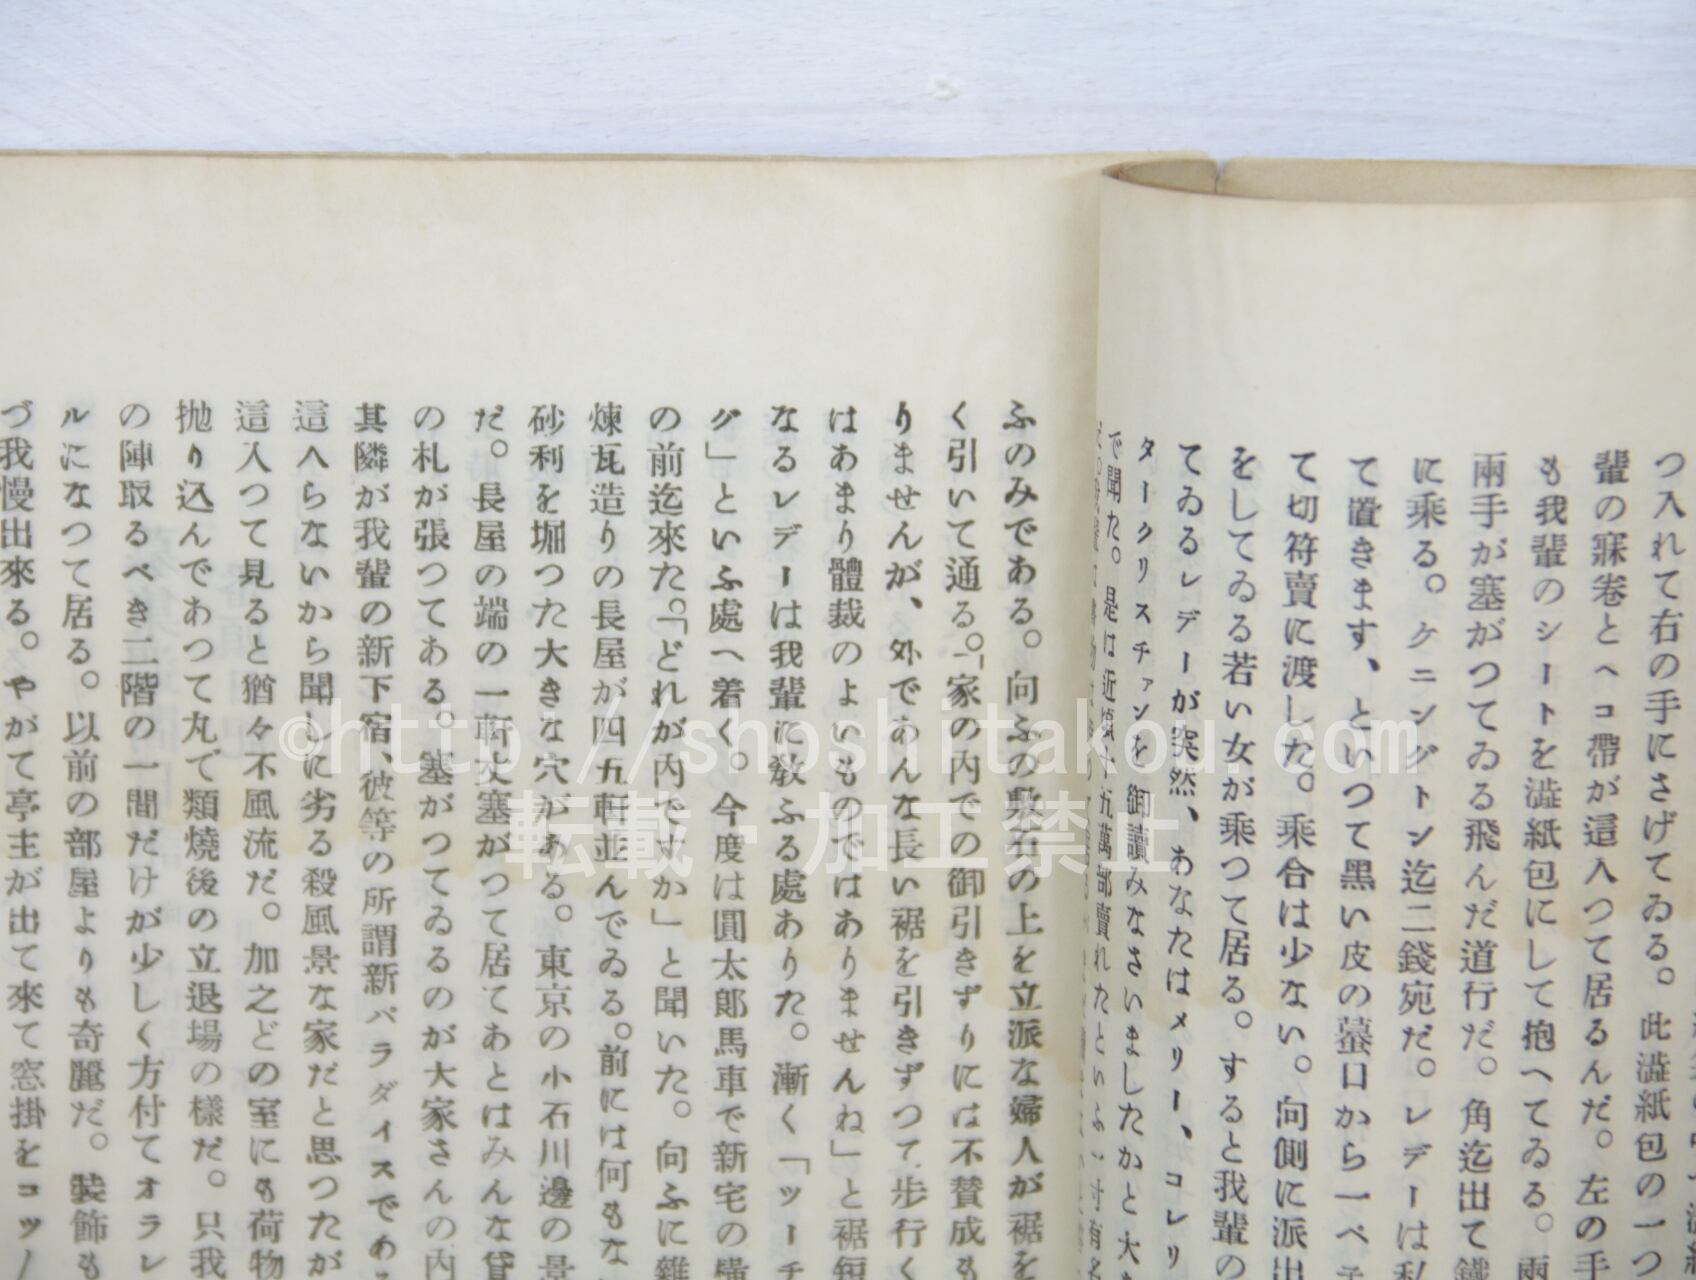 つ入れて右の手にさげてゐる。此澁紙包の一つ
輩の寐卷とヘコ帶が這入つて居るんだ。左の手
も我輩のシートを澁紙包にして抱へてゐる。兩
兩手が塞がつてゐる飛んだ道行だ。角迄出て鐵
に乘る。ケニングトン迄二錢宛だ。レデーは私
て置きます、といつて黑い皮の蟇口から一ペ
て切符賣に渡した。乘合は少ない。向側に派出
をしてゐる若い女が乘つて居る。すると我輩の
てゐるレデーが突然、あなたはメリー、コレリ
タークリスチァンを御讀みなさいましたかと大
で聞た。是は近頃十五萬部賣れたといふ
ふのみである。向ふの敷石の上を立派な婦人が裾を
く引いて通る。「家の内での御引きずりには不賛成も
りませんが、外であんな長い裾を引きずつて步行く
はあまり體裁のよいものではありませんね」と裾短
なるレデーは我輩に敎ふる處ありた。漸く「ツーチ
グ」といふ處へ着く。今度は圓太郎馬車で新宅の橫
の前迄來た。「どれが内ですか」と聞いた。向ふに雜
煉瓦造りの長屋が四五軒並んでゐる。前には何もな
砂利を堀つた大きな穴がある。東京の小石川邊の景
だ。長屋の端の一軒丈塞がつて居てあとはみんな貸
の札が張つてある。塞がつてゐるのが大家さんの内
其隣が我輩の新下宿、彼等の所謂新パラダイスであ
這へらないから聞しに劣る殺風景な家だと思つたが
這入つて見ると猶々不風流だ。加之どの室にも荷物
抛り込んであつて丸で類燒後の立退場の樣だ。只我
の陣取るべき二階の一間だけが少しく方付てオラレ
ルになつて居る。以前の部屋よりも奇麗だ。裝飾も
づ我慢出來る。やがて亭主が出て來て窓掛をコツ
©http://shoshitakou.com
転載・加工禁止